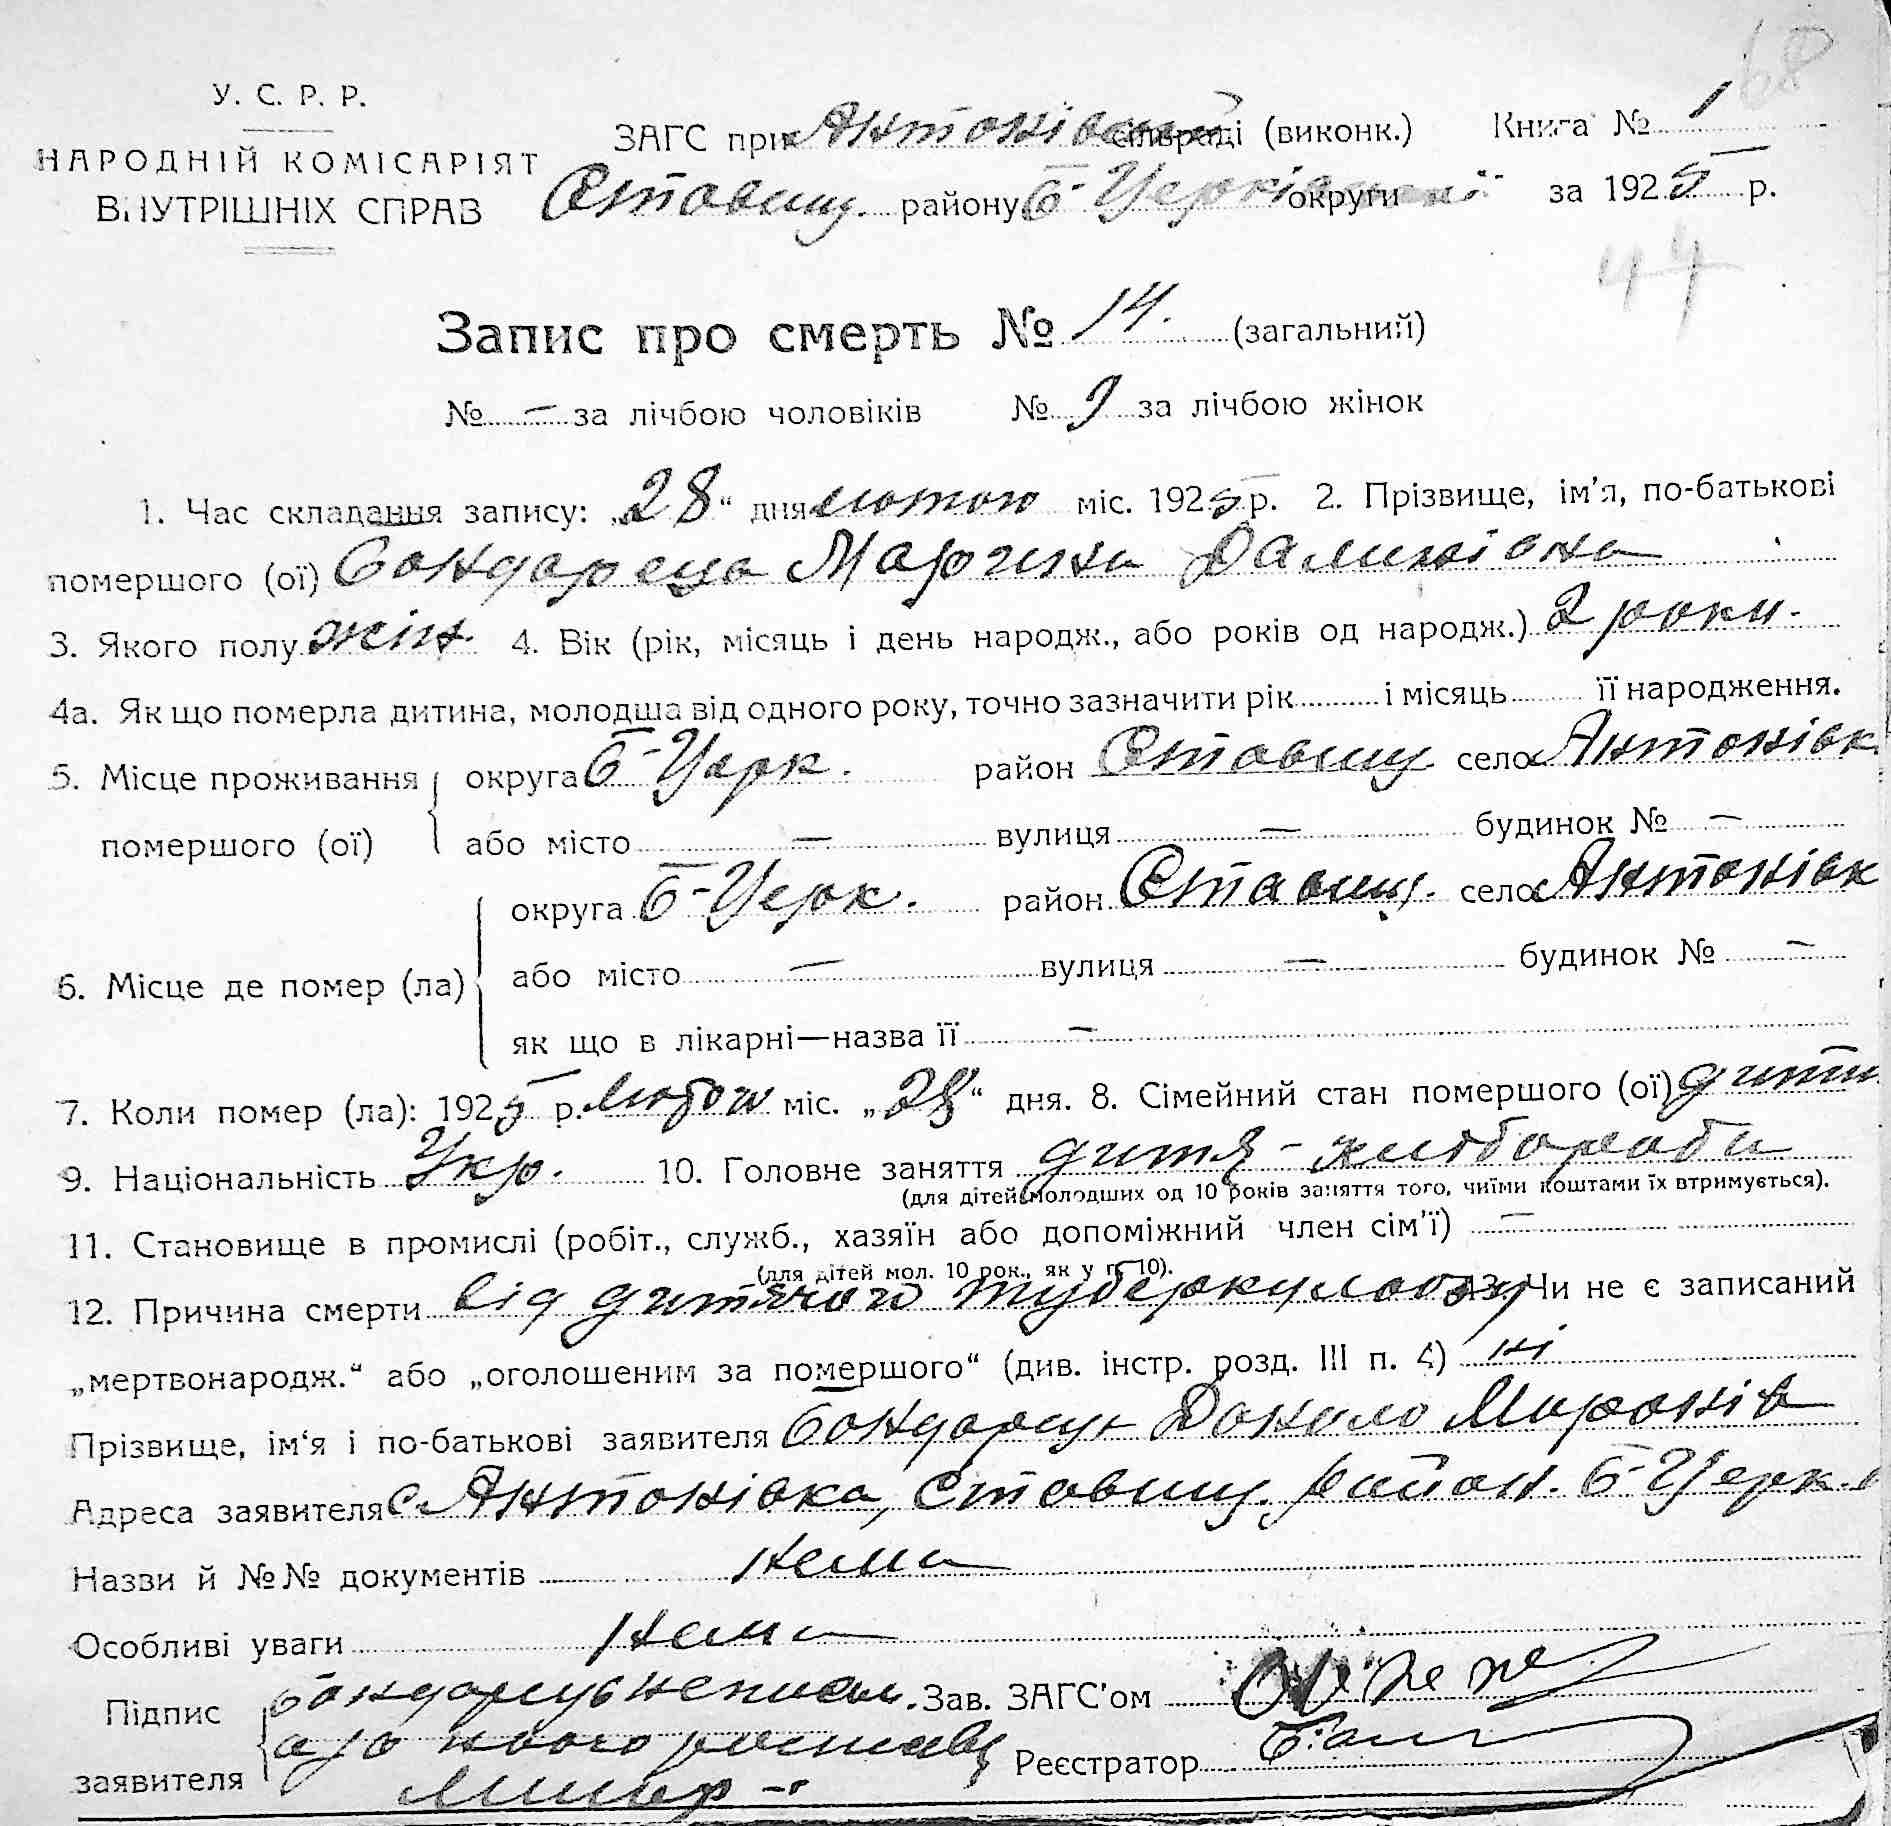 68
У. С. Р. Р.
НАРОДНІЙ КОМІСАРІЯТ
ВНУТРІШНІХ СПРАВ
ЗАГС при Антонівській сільраді (виконк.) Книга № 1
Ставищ. району Б-Церківської округи за 1925 р.
44
Запис про смерть № 14. (загальний)
№ — за лічбою чоловіків № 9 за лічбою жінок
1. Час складання запису: „28“ дня лютого міс. 1925 р. 2. Прізвище, ім'я, по-батькові
помершого (ої) Бондарець
3. Якого полу жін. 4. Вік (рік, місяць і день народж., або років од народж.) 2 роки.
4а. Як що померла дитина, молодша від одного року, точно зазначити рік і місяць її народження.
5. Місце проживання помершого (ої) округа Б-Церк. район Ставищ село Антонівк
або місто — вулиця — будинок № —
6. Місце де помер (ла) округа Б-Церк. район Ставищ. село Антонівк
або місто — вулиця — будинок № —
як що в лікарні—назва її —
7. Коли помер (ла): 1925 р. лютого міс. „28“ дня. 8. Сімейний стан помершого (ої) дити
9. Національність Укр. 10. Головне заняття дитя - хлібороба
(для дітей молодших од 10 років заняття того, чиїми коштами їх втримується).
11. Становище в промислі (робіт., служб., хазяїн або допоміжний член сім'ї) —
(для дітей мол. 10 рок., як у п. 10).
12. Причина смерти від дитячого туберкульозу 13. Чи не є записаний
„мертвонародж.“ або „оголошеним за помершого“ (див. інстр. розд. III п. 4) ні
Прізвище, ім'я і по-батькові заявителя Бондарець Данило Миронів
Адреса заявителя с Антонівка, Ставищ. район. Б-Церк. о
Назви й №№ документів нема
Особливі уваги нема
Підпис заявителя Бондарець неписьм. Зав. ЗАГС'ом
а за нього росписавсь Реєстратор